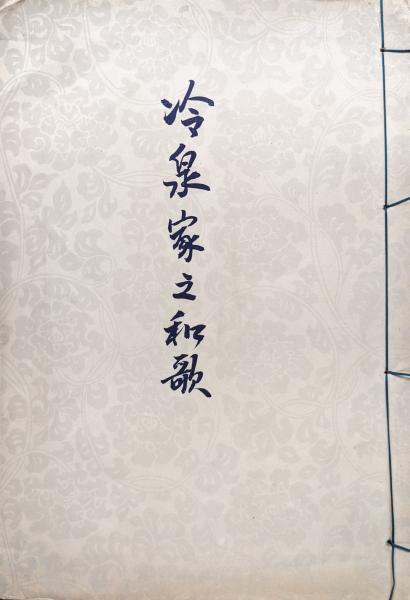 冷泉家之和歌